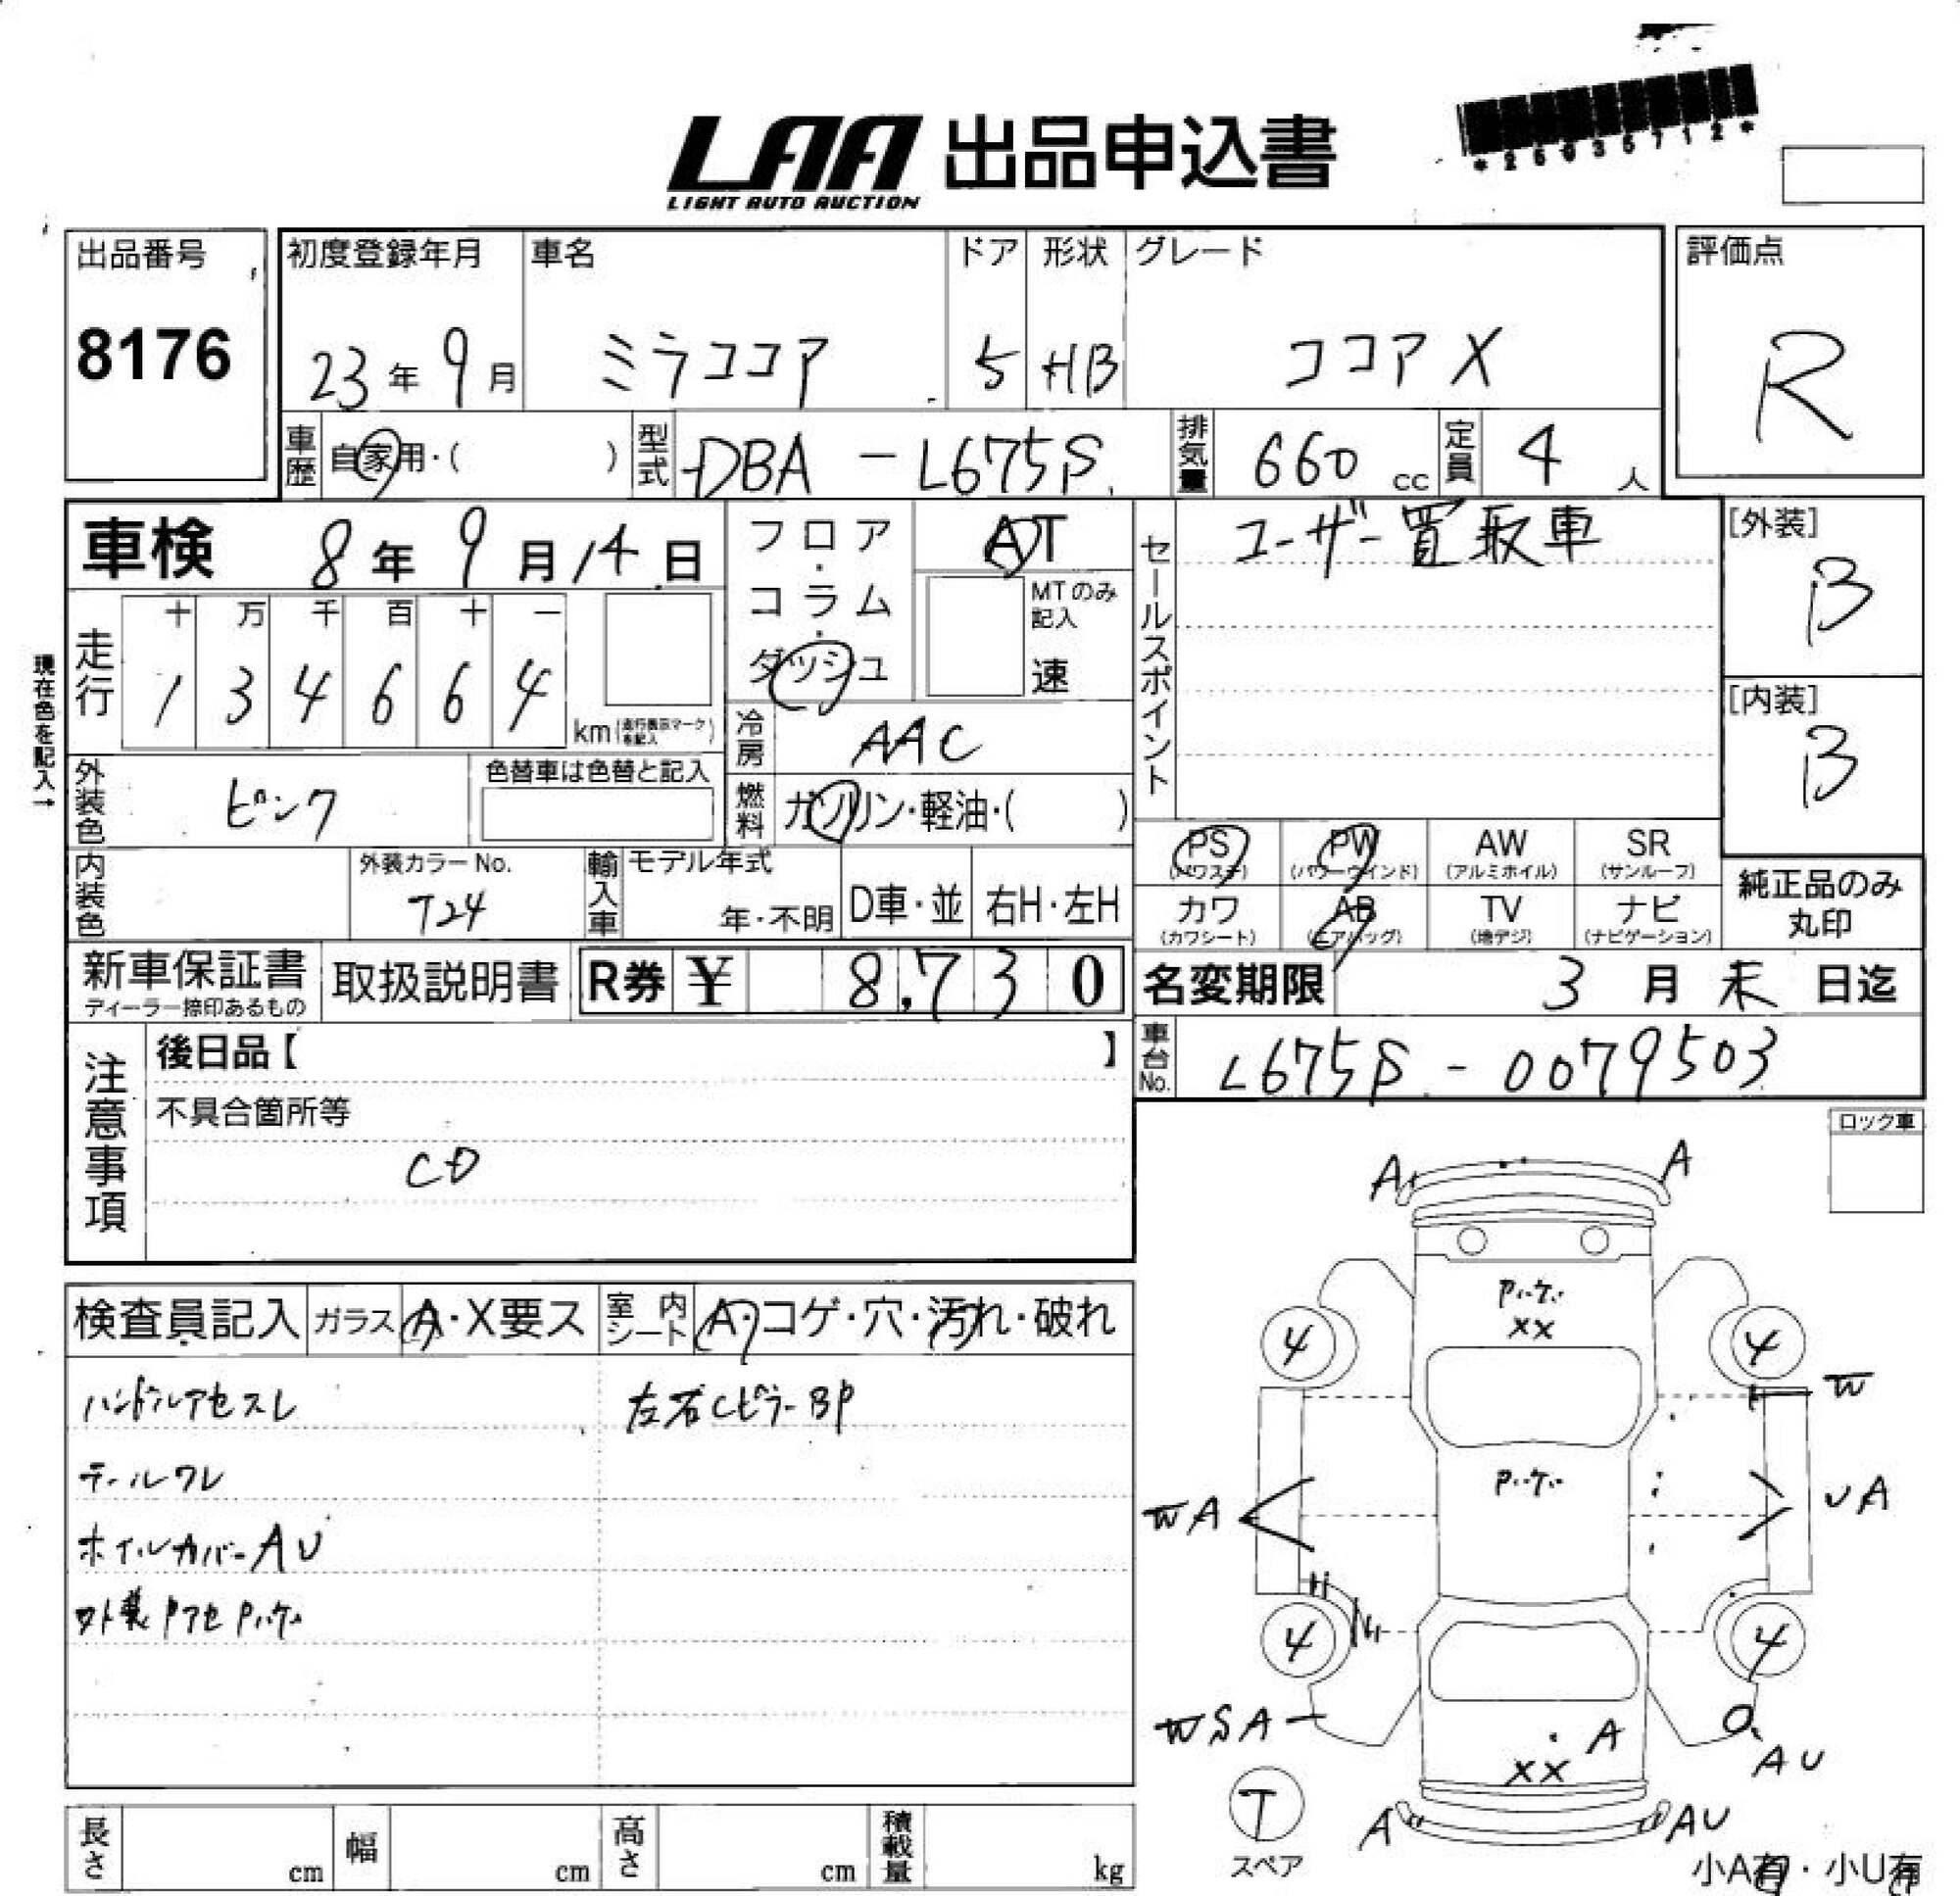 *25035712*
LAA 出品申込書
LIGHT AUTO AUCTION
出品番号
8176
初度登録年月
23年9月
車名
ミラココア
ドア
5
形状
HB
グレード
ココアX
評価点
R
車歴 自家用・( )
型式 DBA-L675S
排気量 660 cc
定員 4 人
車検 8年9月14日
フロア・コラム・ダッシュ
AT
MTのみ記入
速
セールスポイント
ユーザー買取車
[外装]
B
[内装]
B
現在色を記入→
走行
十 万 千 百 十 一
1 3 4 6 6 4
km (走行表示マークを記入)
冷房 AAC
燃料 ガソリン・軽油・( )
外装色 ピンク
色替車は色替と記入
内装色
外装カラーNo.
T24
輸入車
モデル年式
年・不明
D車・並
右H・左H
PS
(パワステ)
PW
(パワーウインド)
AW
(アルミホイル)
SR
(サンルーフ)
カワ
(カワシート)
AB
(エアバッグ)
TV
(地デジ)
ナビ
(ナビゲーション)
純正品のみ
丸印
新車保証書
ディーラー捺印あるもの
取扱説明書
R券 ¥ 8,730
名変期限 3月末日迄
車台No. L675S-0079503
注意事項
後日品【 】
不具合箇所等
CD
ロック車
検査員記入
ガラス A・X要ス
室内シート A・コゲ・穴・汚れ・破れ
左右Cピラー BP
テールワレ
ホイルカバーAU
A A
XX
4 4
W
WA
UA
4 4
WSA
A
XX
AU
T
スペア
A AU
小A有・小U有
長さ cm
幅 cm
高さ cm
積載量 kg